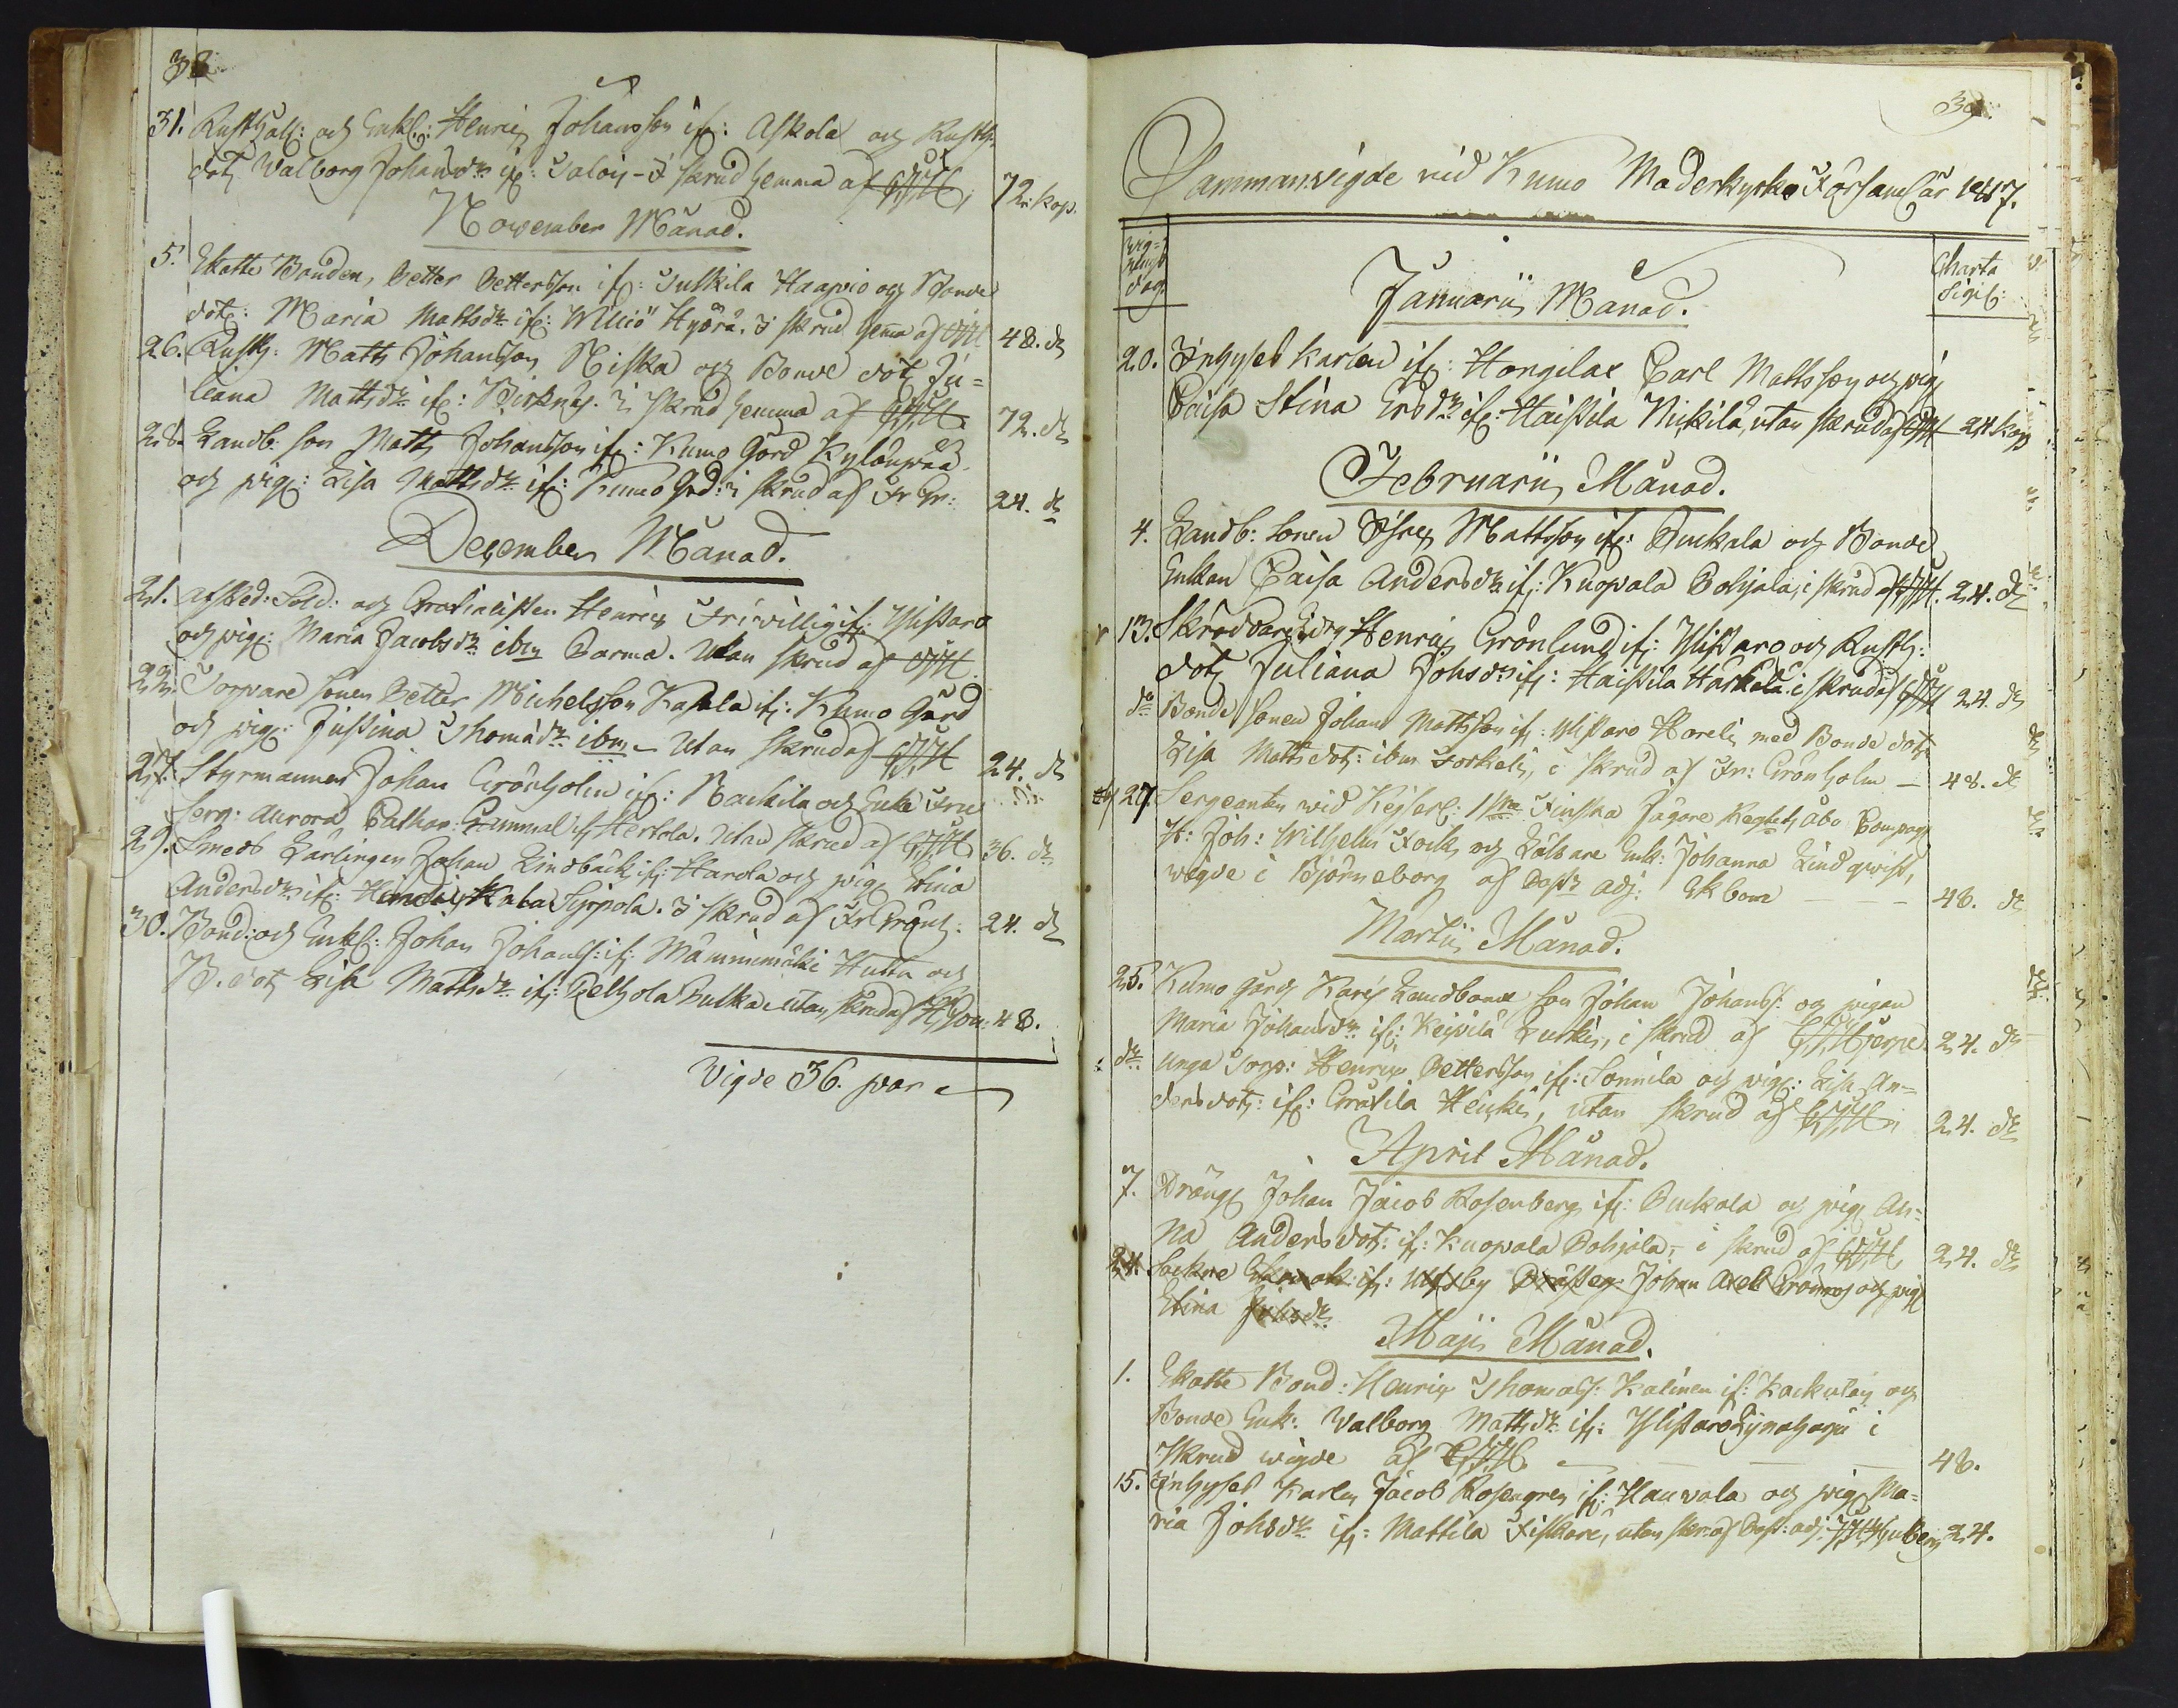 38
31. Rusthåll: och Enkl: Henric Johansson if: Askola och Rusth:
dotr Walborg Johansdr if: Taloin - I skrud hemma af GJH 72. kop.
November Månad.
5. Skatte Bonden, Petter Pettersson if: Tulkila Haapio och Bonde
dotr: Maria Mattsdr if: Williö Hyörä. I skrud hema af GJH 48. dr
26. Rusth: Matts Johansson Niska och Bonde dotr Ju=
liana Mattsdr if: Pirknäs. I skrud hemma af GJH 72. dr
28. Landb. son Matts Johansson if: Kumo Gård Kylänpää
och pig: Lisa Mattsdr if: Kumo Grd: i skrud af Fr Gr: 24. dr
December Månad.
21. afsked: Sold: och Gratialisten Henric Frivillig if: Ylistaro
och pig: Maria Jacobsdr ibm Parma. Utan skrud af GJH.
22. Torpare sonen Petter Michelsson Kasala if: Kumo Gård
och pig: Justina Thomædr ibm - Utan skrud af GJH 24. dr
27. Styrmannen Johan Grönholm if: Rackila och Enke Fru
Serg: Aurora Gammal if: Hertola. Utan skrud af GJH 36. dr
29. Smeds Lärlingen Johan Lindbäck if: Harola och pig Stina
Andersdr if: Sirpola. I skrud af 24. dr
30. Bond: och Enkl: Johan Johanss: if: Mämmimäki Hutta och
B. dotr Lisa Mattsdr if: Pelhola Pulka utan skrud af 48.
Vigde 36. par
39.
Sammanvigde vid Kumo Moderkyrko Församl år 1817.
Wig=
nings
dag.
Charta
Sigil:
Januarii Månad.
20. Inhyses karlen if: Hongilax Carl Mattsson och pig
Caisa Stina Ersdr if: Haistila Nickilä, utan skrud af GJH 24 kop
Februarii Månad.
4. Landb: sonen Mattsson if: Puckala och Bonde
Enkan Caisa Andersdr if: Kuopala Pohjala, i skrud af GJH. 24. dr
13. Skräddare Henric Grönlund if: Ylistaro och Rusth:
dotr Juliana Johsdr if: Haistila Härkälä. i skrud af GJH 24. dr
dr Bonde sonen Johan Mattsson if: Ylistaro Horeli med Bonde dotr
Lisa Matts dotr: ibm Torkeli, i skrud af Fr: Grönholm - 48. dr
27. Sergeanten wid Kejserl: 1sta Finska Jägare Regtet, Åbo Compag
H: Joh: Wilhelm Fock, och Enk: Johanna Lindqwist,
wigde i Björneborg af Past: Adj: Ekbom - - - 48. dr
Martii Månad.
25. Kumo gårds Karis Landbonde son Johan Johanss: och pigan
Maria Johansdr if: Keipilä Turkis, i skrud af Hjerpe. 24. dr
dr Unga Torp: Henric Pettersson if: Sonnila och pig: Lisa An=
ders dotr: if: Gråtila Heikis, utan skrud af GJH 24. dr
April Månad.
7. Dräng Johan Jacob Rosenberg if: Puckala och pig An=
na Anders dotr: if: Kuopala Pohjola, i skrud af GJH 24. dr
24. Sockne if: Ulfsby Johan Axel och pig
Stina Johsdr
Maji Månad.
1. Skatte Bond: Henric Thomass: Kalinen if: Kackulax och
Bonde Enk: Walborg Mattsdr if: Ylistaro Lynaharju i
Skrud wigde af GJH - - - 48.
15. Inhyses Karlen Jacob Rosengren if: Kauvola och pig Ma=
ria Johsdr if: Mattila Fiskare, utan skr: af Past: adj: 24.